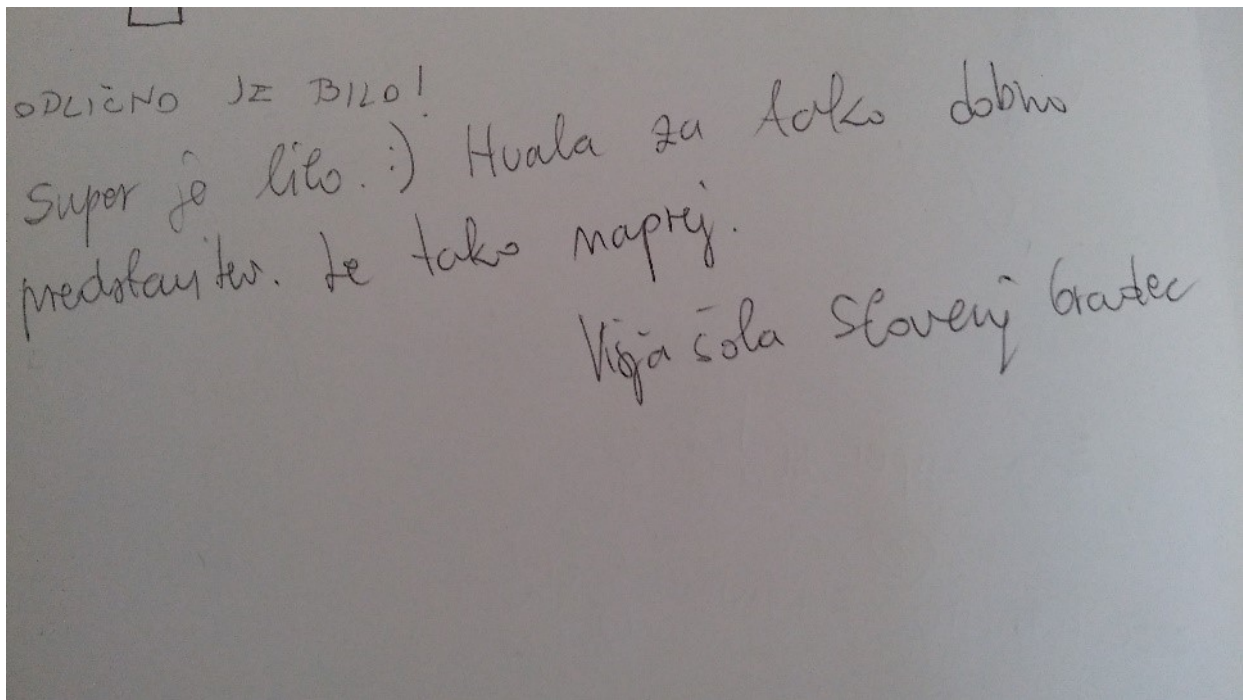 ODLIČNO JE BILO!
Super je bilo. :) Hvala za tako dobro
predstavitev. Le tako naprej.
Višja šola Slovenj Gradec